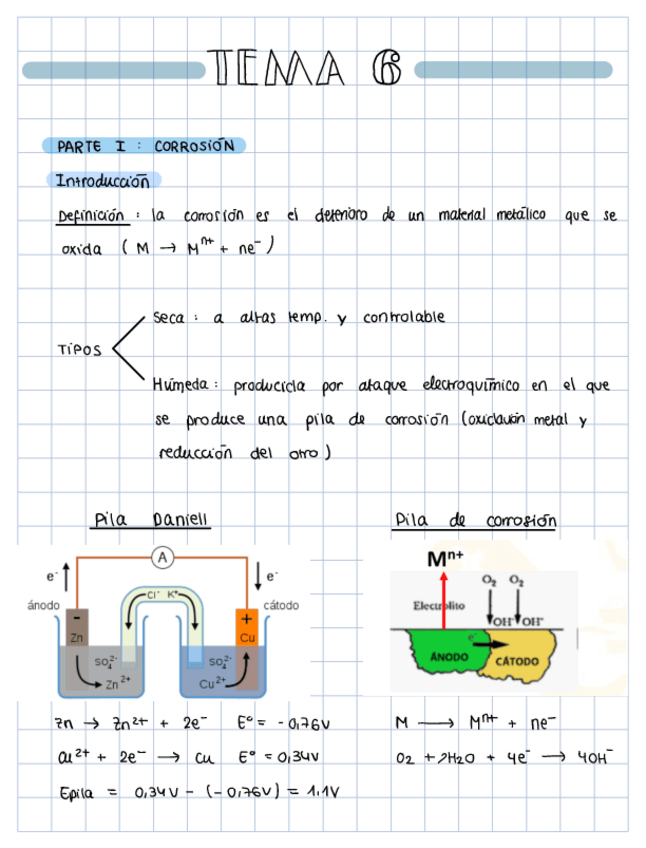 TEMA 6
PARTE I : CORROSIÓN
Introducción
Definición : la corrosión es el deterioro de un material metálico que se
oxida ( M → Mⁿ⁺ + ne⁻ )
Seca : a altas temp. y controlable
TIPOS
Húmeda : producida por ataque electroquímico en el que
se produce una pila de corrosión (oxidación metal y
reducción del otro )
Pila Daniell
Pila de corrosión
A
e⁻
e⁻
Cl⁻ K⁺
ánodo
cátodo
-
+
Zn
Cu
SO₄²⁻
SO₄²⁻
Zn²⁺
Cu²⁺
Mⁿ⁺
O₂ O₂
Electrolito
OH⁻ OH⁻
e⁻
ÁNODO
CÁTODO
Zn → Zn²⁺ + 2e⁻ E° = - 0,76V
Cu²⁺ + 2e⁻ → Cu E° = 0,34V
Epila = 0,34V - (-0,76V) = 1.1V
M → Mⁿ⁺ + ne⁻
O₂ + 2H₂O + 4e⁻ → 4OH⁻